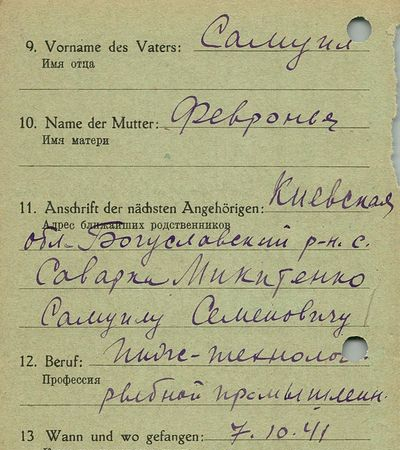 9. Vorname des Vaters: Самуил
Имя отца
10. Name der Mutter: Февронья
Имя матери
11. Anschrift der nächsten Angehörigen: Киевская
Адрес ближайших родственников
обл. Богуславский р-н. с.
Саварка Микитенко
Самуилу Семеновичу
12. Beruf: Инж-технолог
Профессия
рыбной промышлен.
13 Wann und wo gefangen: 7.10.41